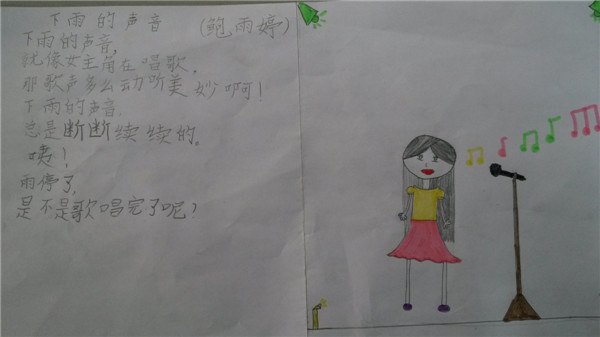 下雨的声音 (鲍雨婷)
下雨的声音,
就像女主角在唱歌.
那歌声多么动听美妙啊!
下雨的声音.
总是断断续续的。
咦!
雨停了,
是不是歌唱完了呢?